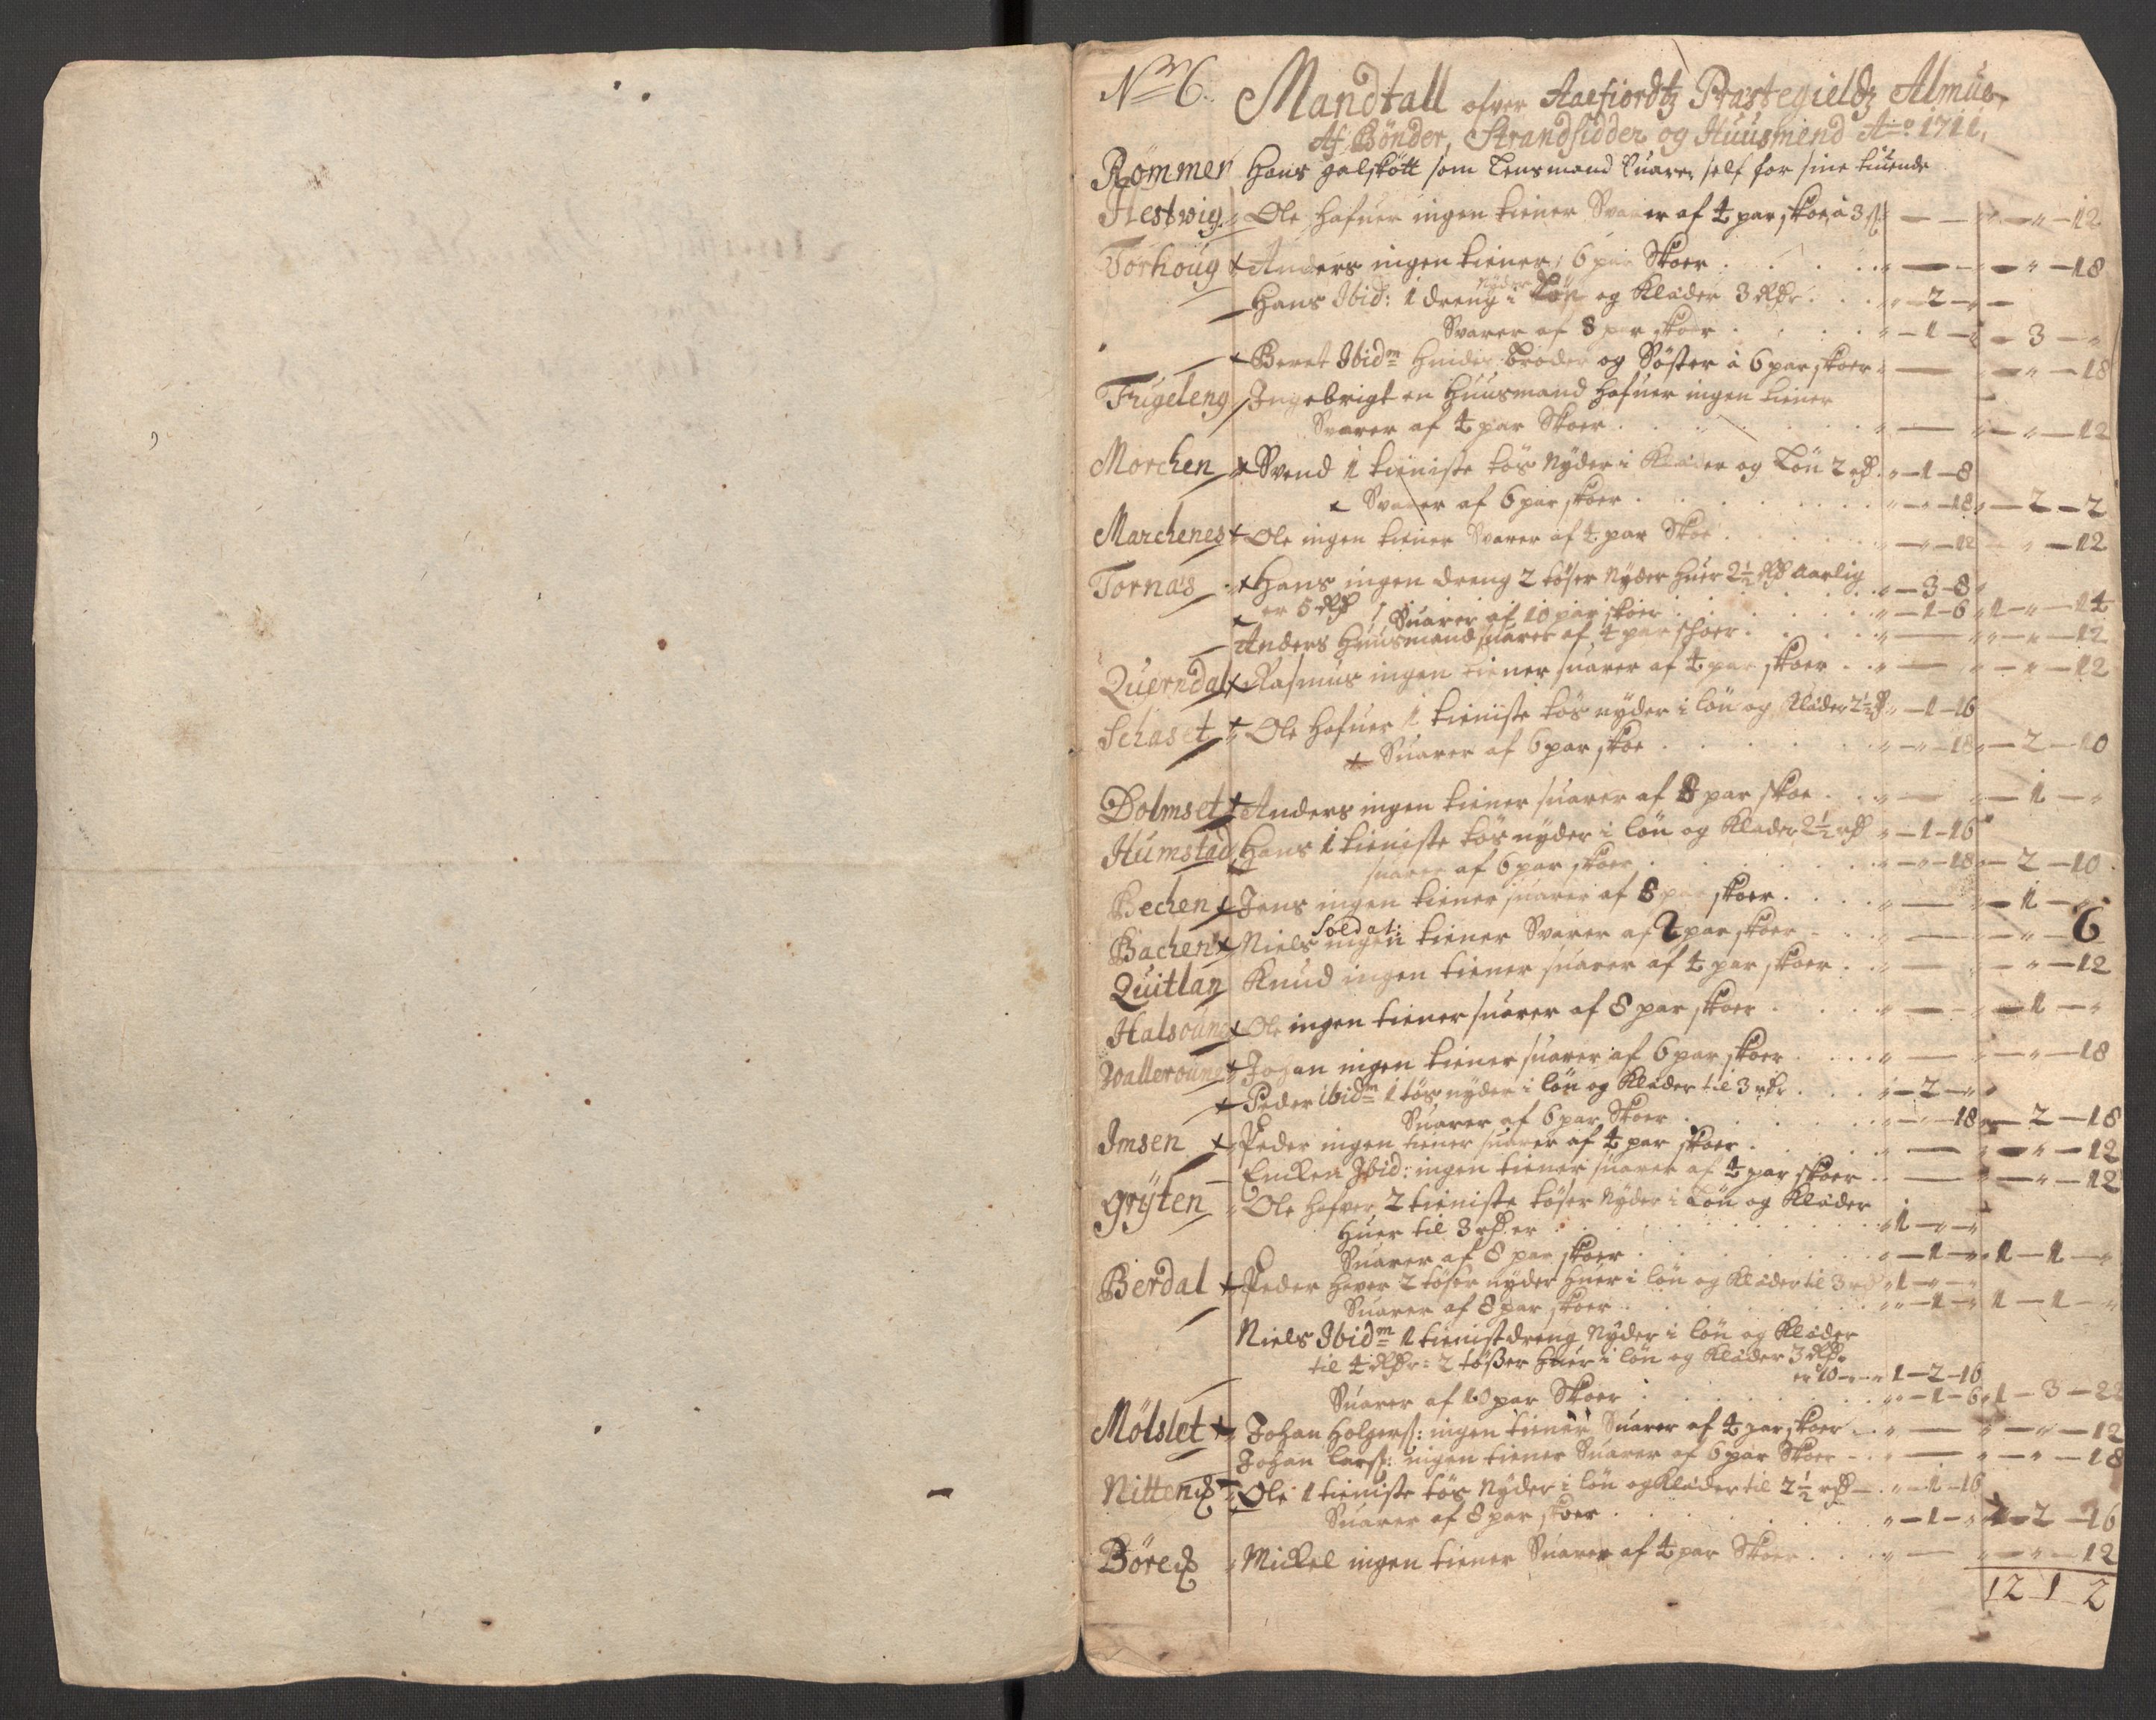 No 6. Mandtall ofver Aaefiordtz Præstegieldz Almue
Af Bönder, Strandsidder og Huusmend Ao: 1711.
Römmen Hans galskött som Lensmand Suarer self for sine tiuende
Hestwig Ole hafuer ingen tiener Svarer af 4 par skoe, à 3 ß — — 12
Torhoug Anders ingen tiener, 6 par Skoer — 18
Hans Ibid: 1 dreng nyder i Lön og Klæder 3 Rdr — 2 —
Svarer af 8 par skoer — 1 — 3 —
Beret Ibidm Broder og Söster à 6 par skoer — 18
Fugeleng Ingebrigt en Huusmand hafuer ingen tiener
Svarer af 4 par Skoer — 12
Morchen Svend 1 tieniste tös Nyder i Klæder og Lön 2 rd — 1 — 8
Svarer af 6 par skoer — 18 — 2 — 2
Marchenes Ole ingen tiener Svarer af 4 par Skoe — 12 — 12
Tornæs Hans ingen dreng 2 töser Nyder huer 2½ Rd Aarlig
er 5 Rd — 3 — 8
Suarer af 10 par skoer — 1 — 6 1 — 14
Anders Huusmand suarer af 4 par schoer — 12
Querndal Rasmus ingen tiener suarer af 4 par skoer — 12
Schaset Ole hafuer 1 tieniste tös nyder i lön og Klæder 2½ rd — 1 — 16
Suarer af 6 par skoe — 18 — 2 — 10
Dolmset Anders ingen tiener suarer af 8 par skoe — 1 —
Humstad Hans 1 tieniste tös nyder i lön og Klæder 2½ rd — 1 — 16
suarer af 6 par skoer — 18 — 2 — 10
Bechen Jens ingen tiener suarer af 8 par skoer — 1 —
Bachen Niels Soldat: ingen tiener Svarer af 2 par skoer — 6
Quitlan Knud ingen tiener suarer af 4 par skoer — 12
Halsoung Ole ingen tiener suarer af 8 par skoer — 1 —
Walleroung Johan ingen tiener suarer af 6 par skoer — 18
Peder ibidm 1 tös nyder i lön og Klæder til 3 rdr — 2 —
Suarer af 6 par Skoer — 18 — 2 — 18
Imsen Peder ingen tiener suarer af 4 par skoer — 12
Ibid: ingen tiener suarer af 4 par skoer — 12
Gryten Ole hafver 2 tieniste töser Nyder i Lön og Klæder
Huer til 3 rd er 1 — —
Suarer af 8 par skoer — 1 — 1 — 1 —
Berdal Peder hever 2 töser nyder huer i lön og Klæder til 3 rd 1 — —
Suarer af 8 par skoer — 1 — 1 — 1 —
Niels Ibidm 1 tienistdreng Nyder i lön og Klæder
til 4 Rdr: 2 tößer huer i lön og Klæder 3 Rdr
er 10 — 1 — 2 — 16
Suarer af 10 par Skoer — 1 — 6 1 — 3 — 22
Mölslet Johan Holgerß: ingen tiener Suarer af 4 par skoer — 12
Johan Larsß: ingen tiener Suarer af 6 par Skoer — 18
Nitten Ole 1 tieniste tös Nyder i lön og Klæder til 2½ rd — 1 — 16
Suarer af 8 par skoer — 1 — 2 — 16
Böre Mickel ingen tiener Suarer af 4 par Skoer — 12
12 1 2